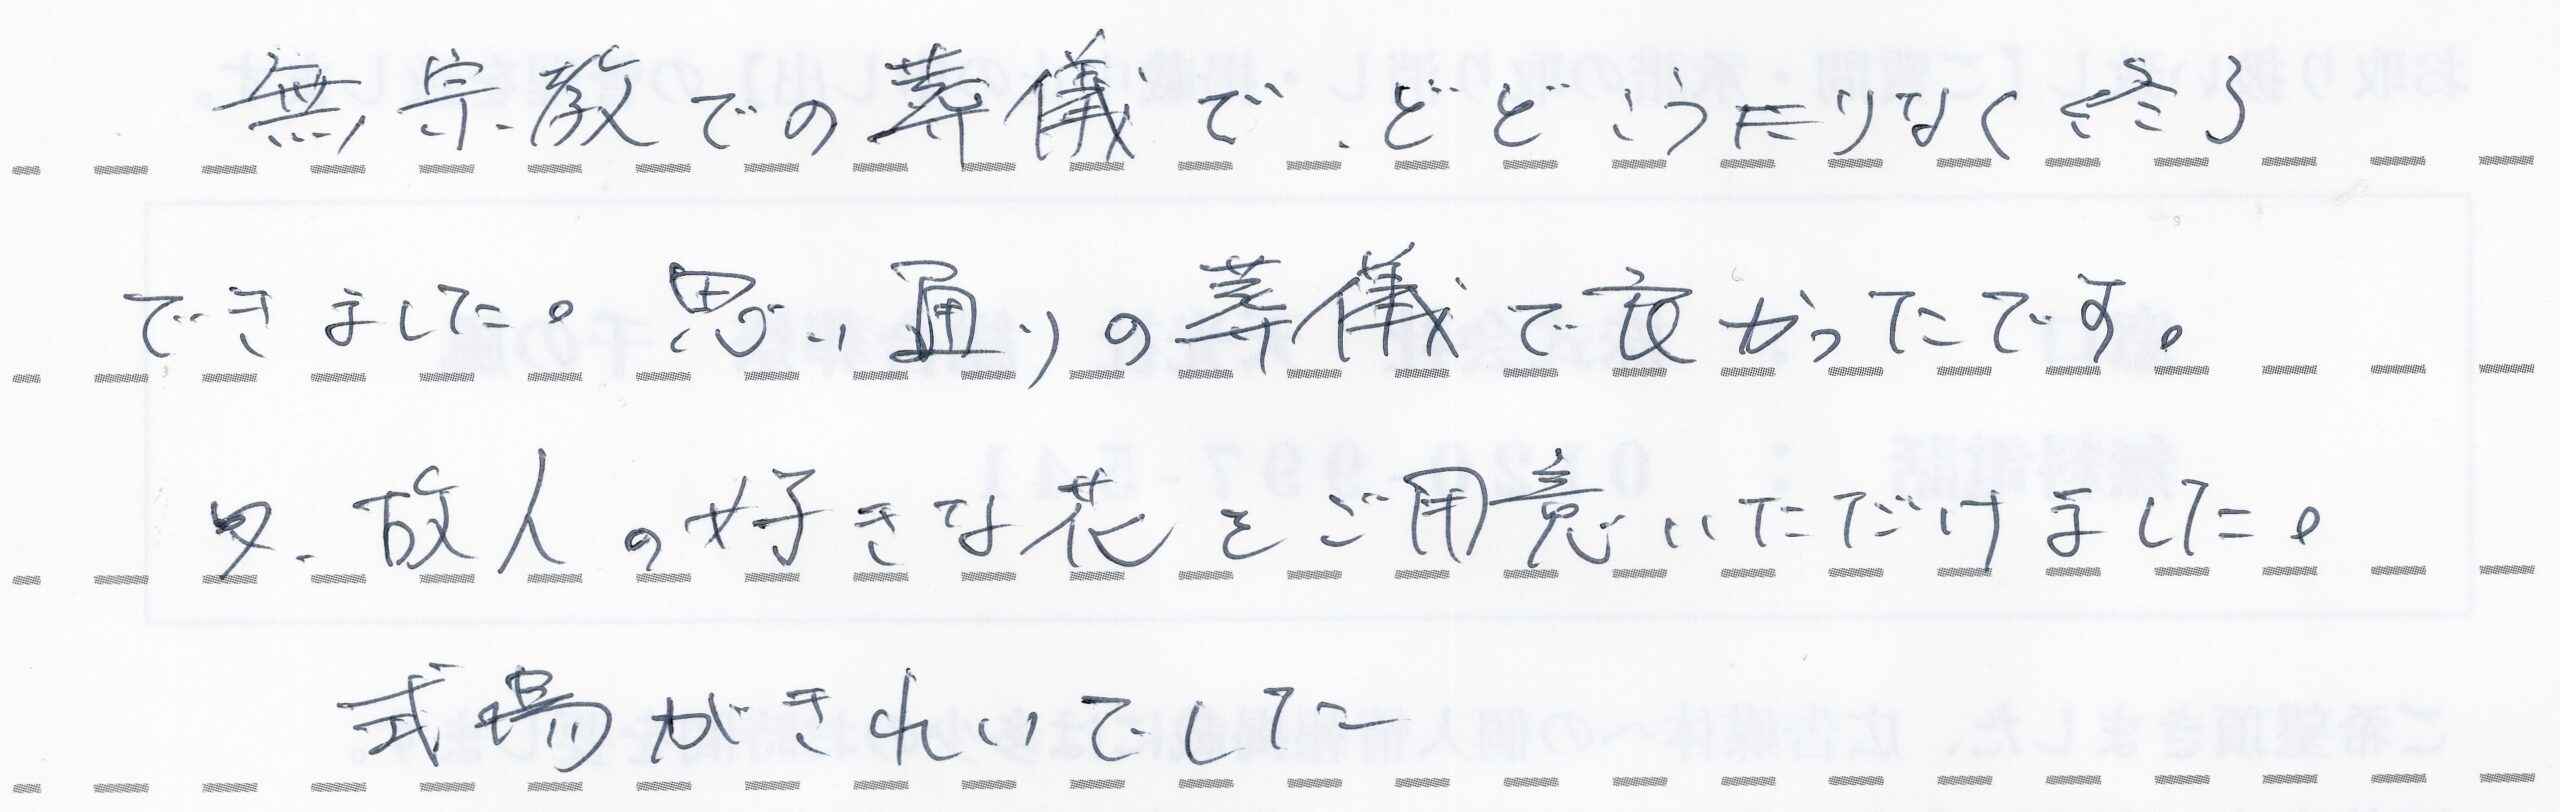 無宗教での葬儀で、とどこうたりなく終了
できました。思い通りの葬儀で良かったです。
又、故人の好きな花をご用意いただけました。
式場がきれいでした